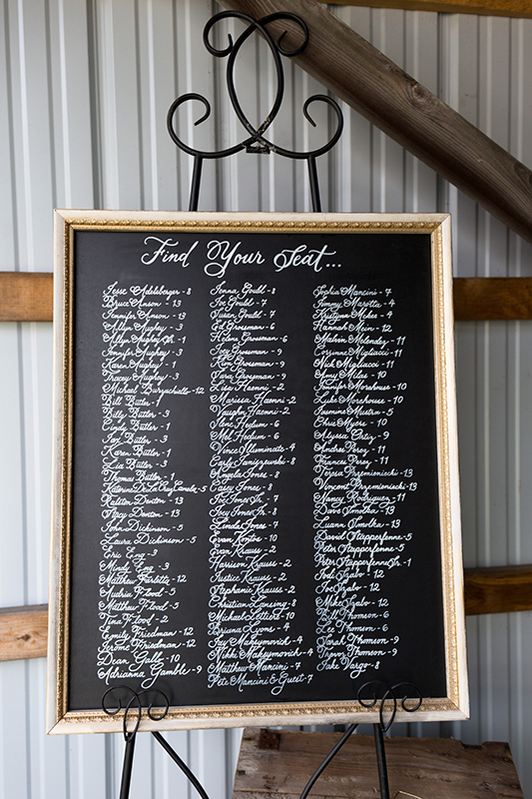 Find Your Seat...
Jesse Adelsberger - 8
Bruce Anson - 13
Jennifer Anson - 13
Allyn Aughey - 3
Allyn Aughey Jr. - 1
Jennifer Aughey - 3
Karen Aughey - 1
Tracey Aughey - 3
Michael - 12
Bill Butler - 1
Billy Butler - 3
Cindy Butler - 1
Jax Butler - 3
Karen Butler - 1
Lia Butler - 3
Thomas Butler - 1
- 5
Denton - 13
Stacy Denton - 13
John Dickinson - 5
Laura Dickinson - 5
Eric Eng - 3
Mindy Eng - 3
Matthew - 12
Audrin Flood - 5
Matthew Flood - 5
Tina Flood - 2
Emily Friedman - 12
Jerome Friedman - 12
Dean - 10
Adrianna Gamble - 9
Jenna Gould - 8
Joe Gould - 7
Susan Gould - 7
Ed Grossman - 6
Helene Grossman - 6
Joey Grossman - 9
Ron Grossman - 9
Grossman - 9
Casey Haenni - 2
Marissa Haenni - 2
Vaughn Haenni - 2
Ilene Hedium - 6
Mel Hedium - 6
Vince Illuminate - 4
Carly Janiszewski - 8
Angela Jones - 8
Casey Jones - 8
Joe Jones Jr. - 7
Joey Jones Jr. - 8
Linda Jones - 7
Evan Kontos - 10
Evan Krauss - 2
Harrison Krauss - 2
Justice Krauss - 2
Stephanie Krauss - 2
Christian Lansing - 8
Michael Letters - 10
Brianna Lyons - 4
Jay Maksymovich - 4
Nikki Maksymovich - 4
Matthew Mancini - 7
Pete Mancini & Guest - 7
Sophia Mancini - 7
Jimmy Marotta - 4
Kristynn McKee - 4
Hannah Mein - 12
Melendez - 11
Corrinne Migliacci - 11
Nick Migliacci - 11
Amy Milas - 10
Jennifer Morehouse - 10
Luke Morehouse - 10
Jasmine Mustro - 5
Chris Myers - 10
Alyssa Ortiz - 9
Andres Perez - 11
Frances Perez - 11
Teresa Przemieniecki - 13
Vincent Przemieniecki - 13
Nancy Rodriguez - 11
Dave Smolka - 13
Luann Smolka - 13
David Stapperfenne - 5
Peter Stapperfenne - 5
Peter Stapperfenne Jr. - 1
Jodi Szabo - 12
Joe Szabo - 12
Mike Szabo - 12
Bill Thomson - 6
Lee Thomson - 6
Sarah Thomson - 9
Trevor Thomson - 9
Jake Vargo - 8